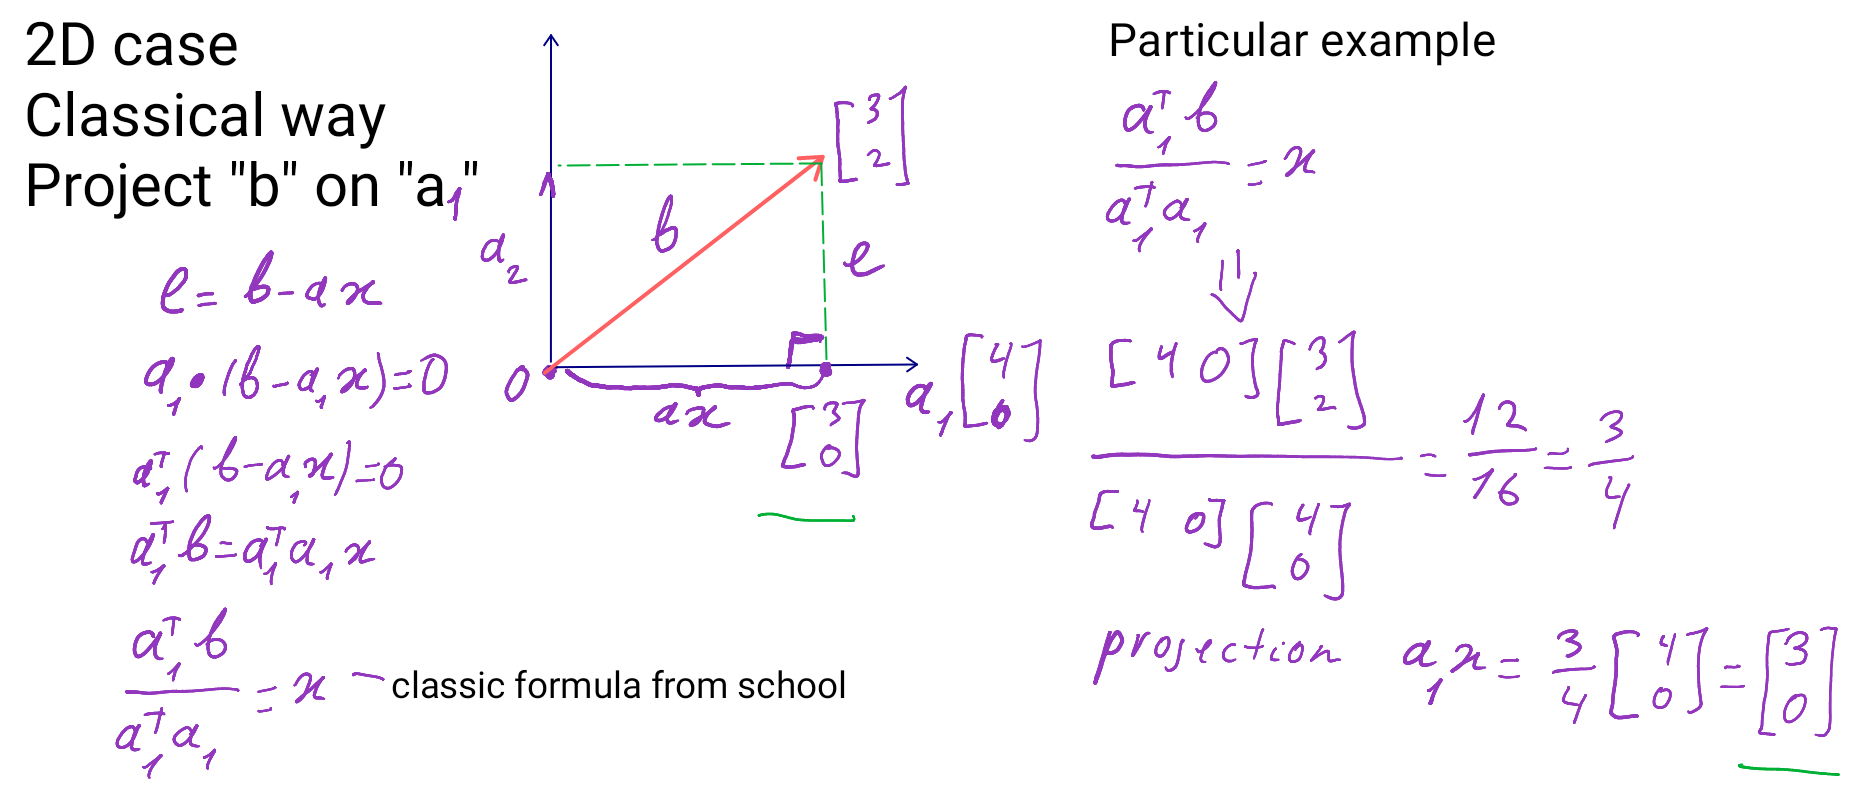 2D case
Classical way
Project "b" on "a₁"
e = b - ax
a₁ • (b - a₁x) = 0
a₁ᵀ(b - a₁x) = 0
a₁ᵀb = a₁ᵀa₁x
a₁ᵀb / a₁ᵀa₁ = x
classic formula from school
a₂
b
[3 2]
e
0
ax
[3 0]
a₁ [4 0]
Particular example
a₁ᵀb / a₁ᵀa₁ = x
[4 0][3 2] / [4 0][4 0] = 12/16 = 3/4
projection a₁x = 3/4 [4 0] = [3 0]